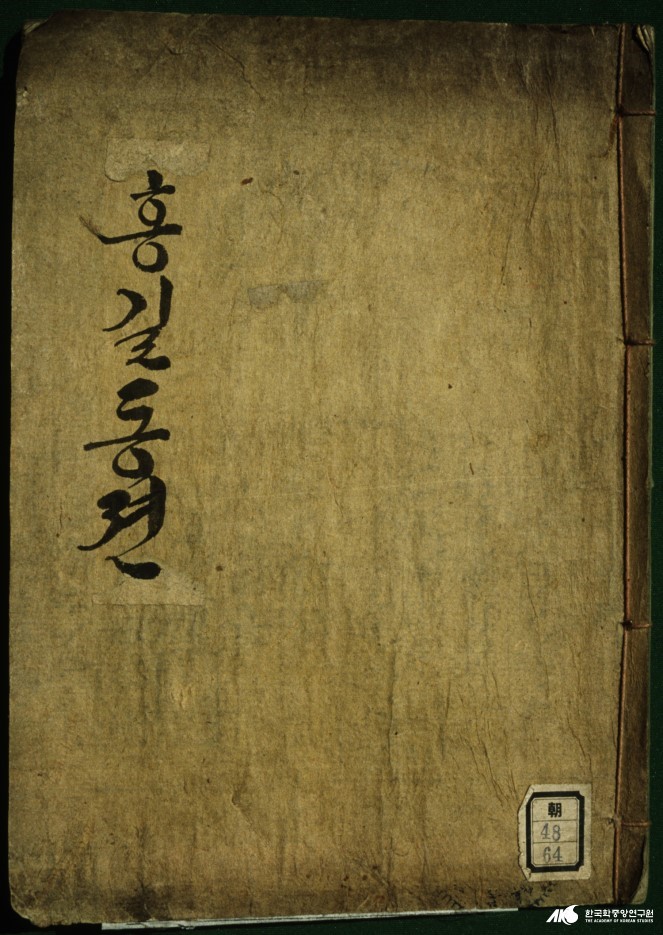 홍길동젼
朝
48
64
AKS 한국학중앙연구원
THE ACADEMY OF KOREAN STUDIES